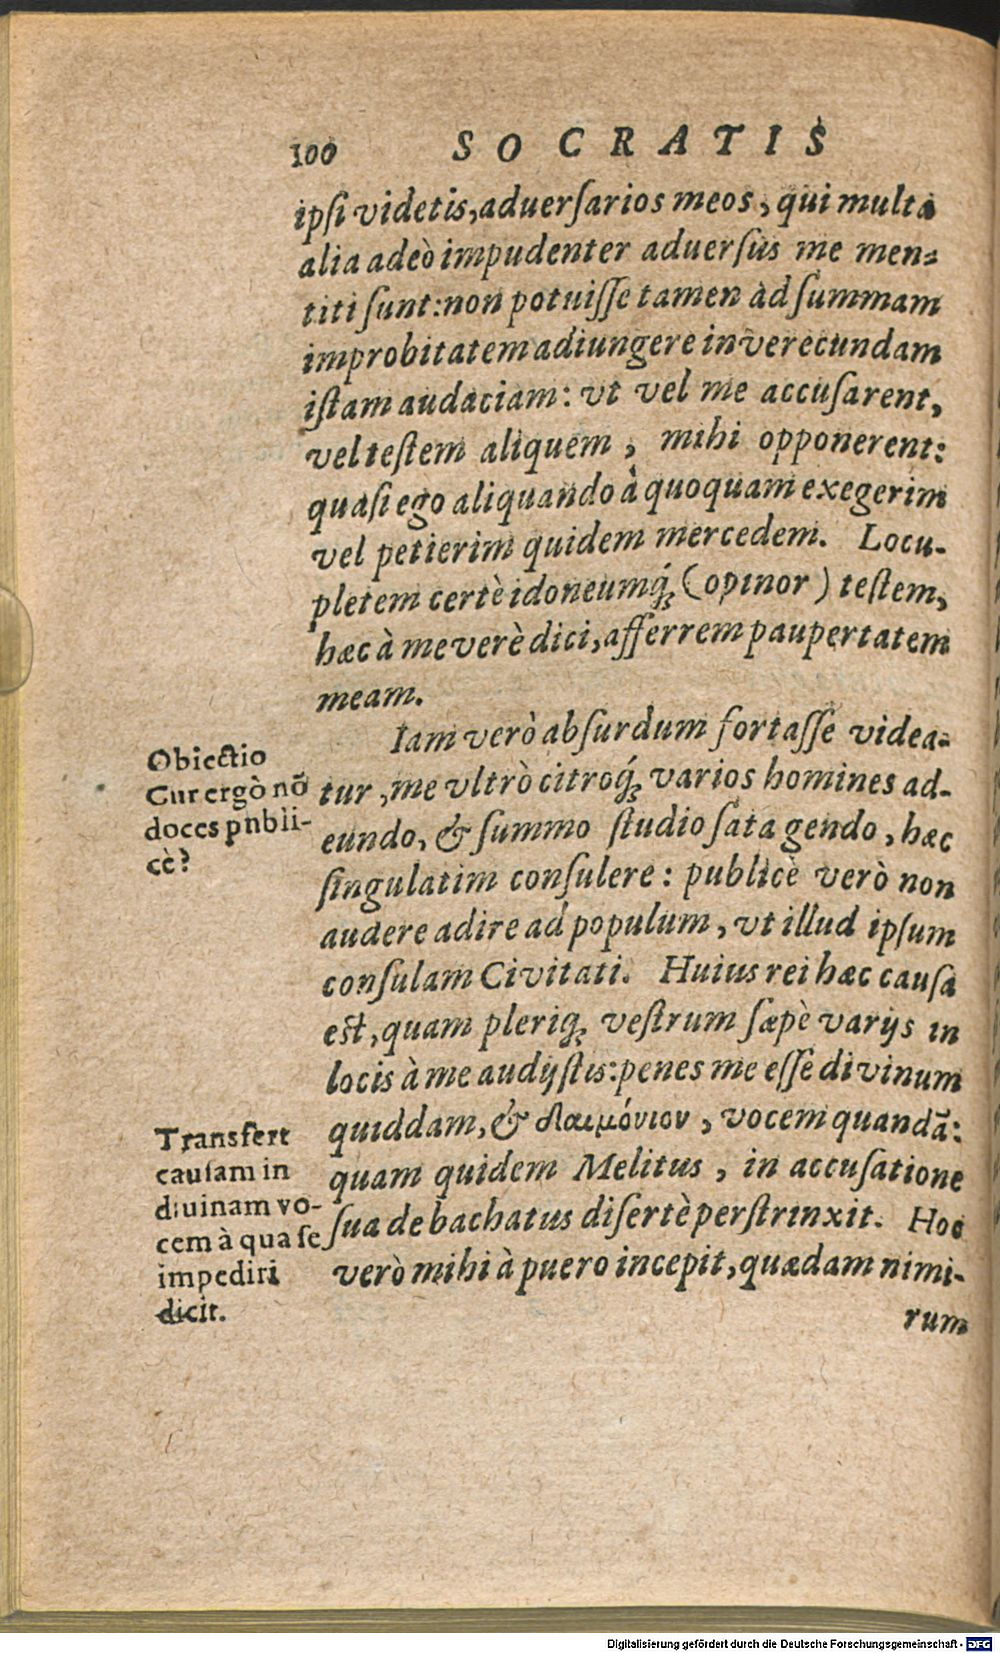 100 SOCRATIS
ipſi videtis, aduerſarios meos, qui multa
alia adeò impudenter aduerſùs me men-
titi ſunt: non potuiſſe tamen àd ſummam
improbitatem adiungere inverecundam
iſtam audaciam: vt vel me accuſarent,
vel teſtem aliquem, mihi opponerent:
quaſi ego aliquando à quoquam exegerim
vel petierim quidem mercedem. Locu-
pletem certè idoneumq́; (opinor) teſtem,
hæc à me verè dici, afferrem paupertatem
meam.
Iam verò abſurdum fortaſſe videa-
tur, me vltrò citroq́; varios homines ad-
eundo, & ſummo ſtudio ſatagendo, hæc
ſingulatim conſulere: publicè verò non
audere adire ad populum, vt illud ipſum
conſulam Civitati. Huius rei hæc cauſa
eſt, quam pleriq; veſtrum ſæpè varijs in
locis à me audijſtis: penes me eſſe divinum
quiddam, & δαιμόνιον, vocem quandã:
quam quidem Melitus, in accuſatione
ſua debachatus diſertè perſtrinxit. Hoc
verò mihi à puero incepit, quædam nimi-
rum
Obiectio
Cur ergò nō
doces publi-
cè?
Transfert
cauſam in
diuinam vo-
cem à qua ſe
impediri
dicit.
Digitalisierung gefördert durch die Deutsche Forschungsgemeinschaft - DFG